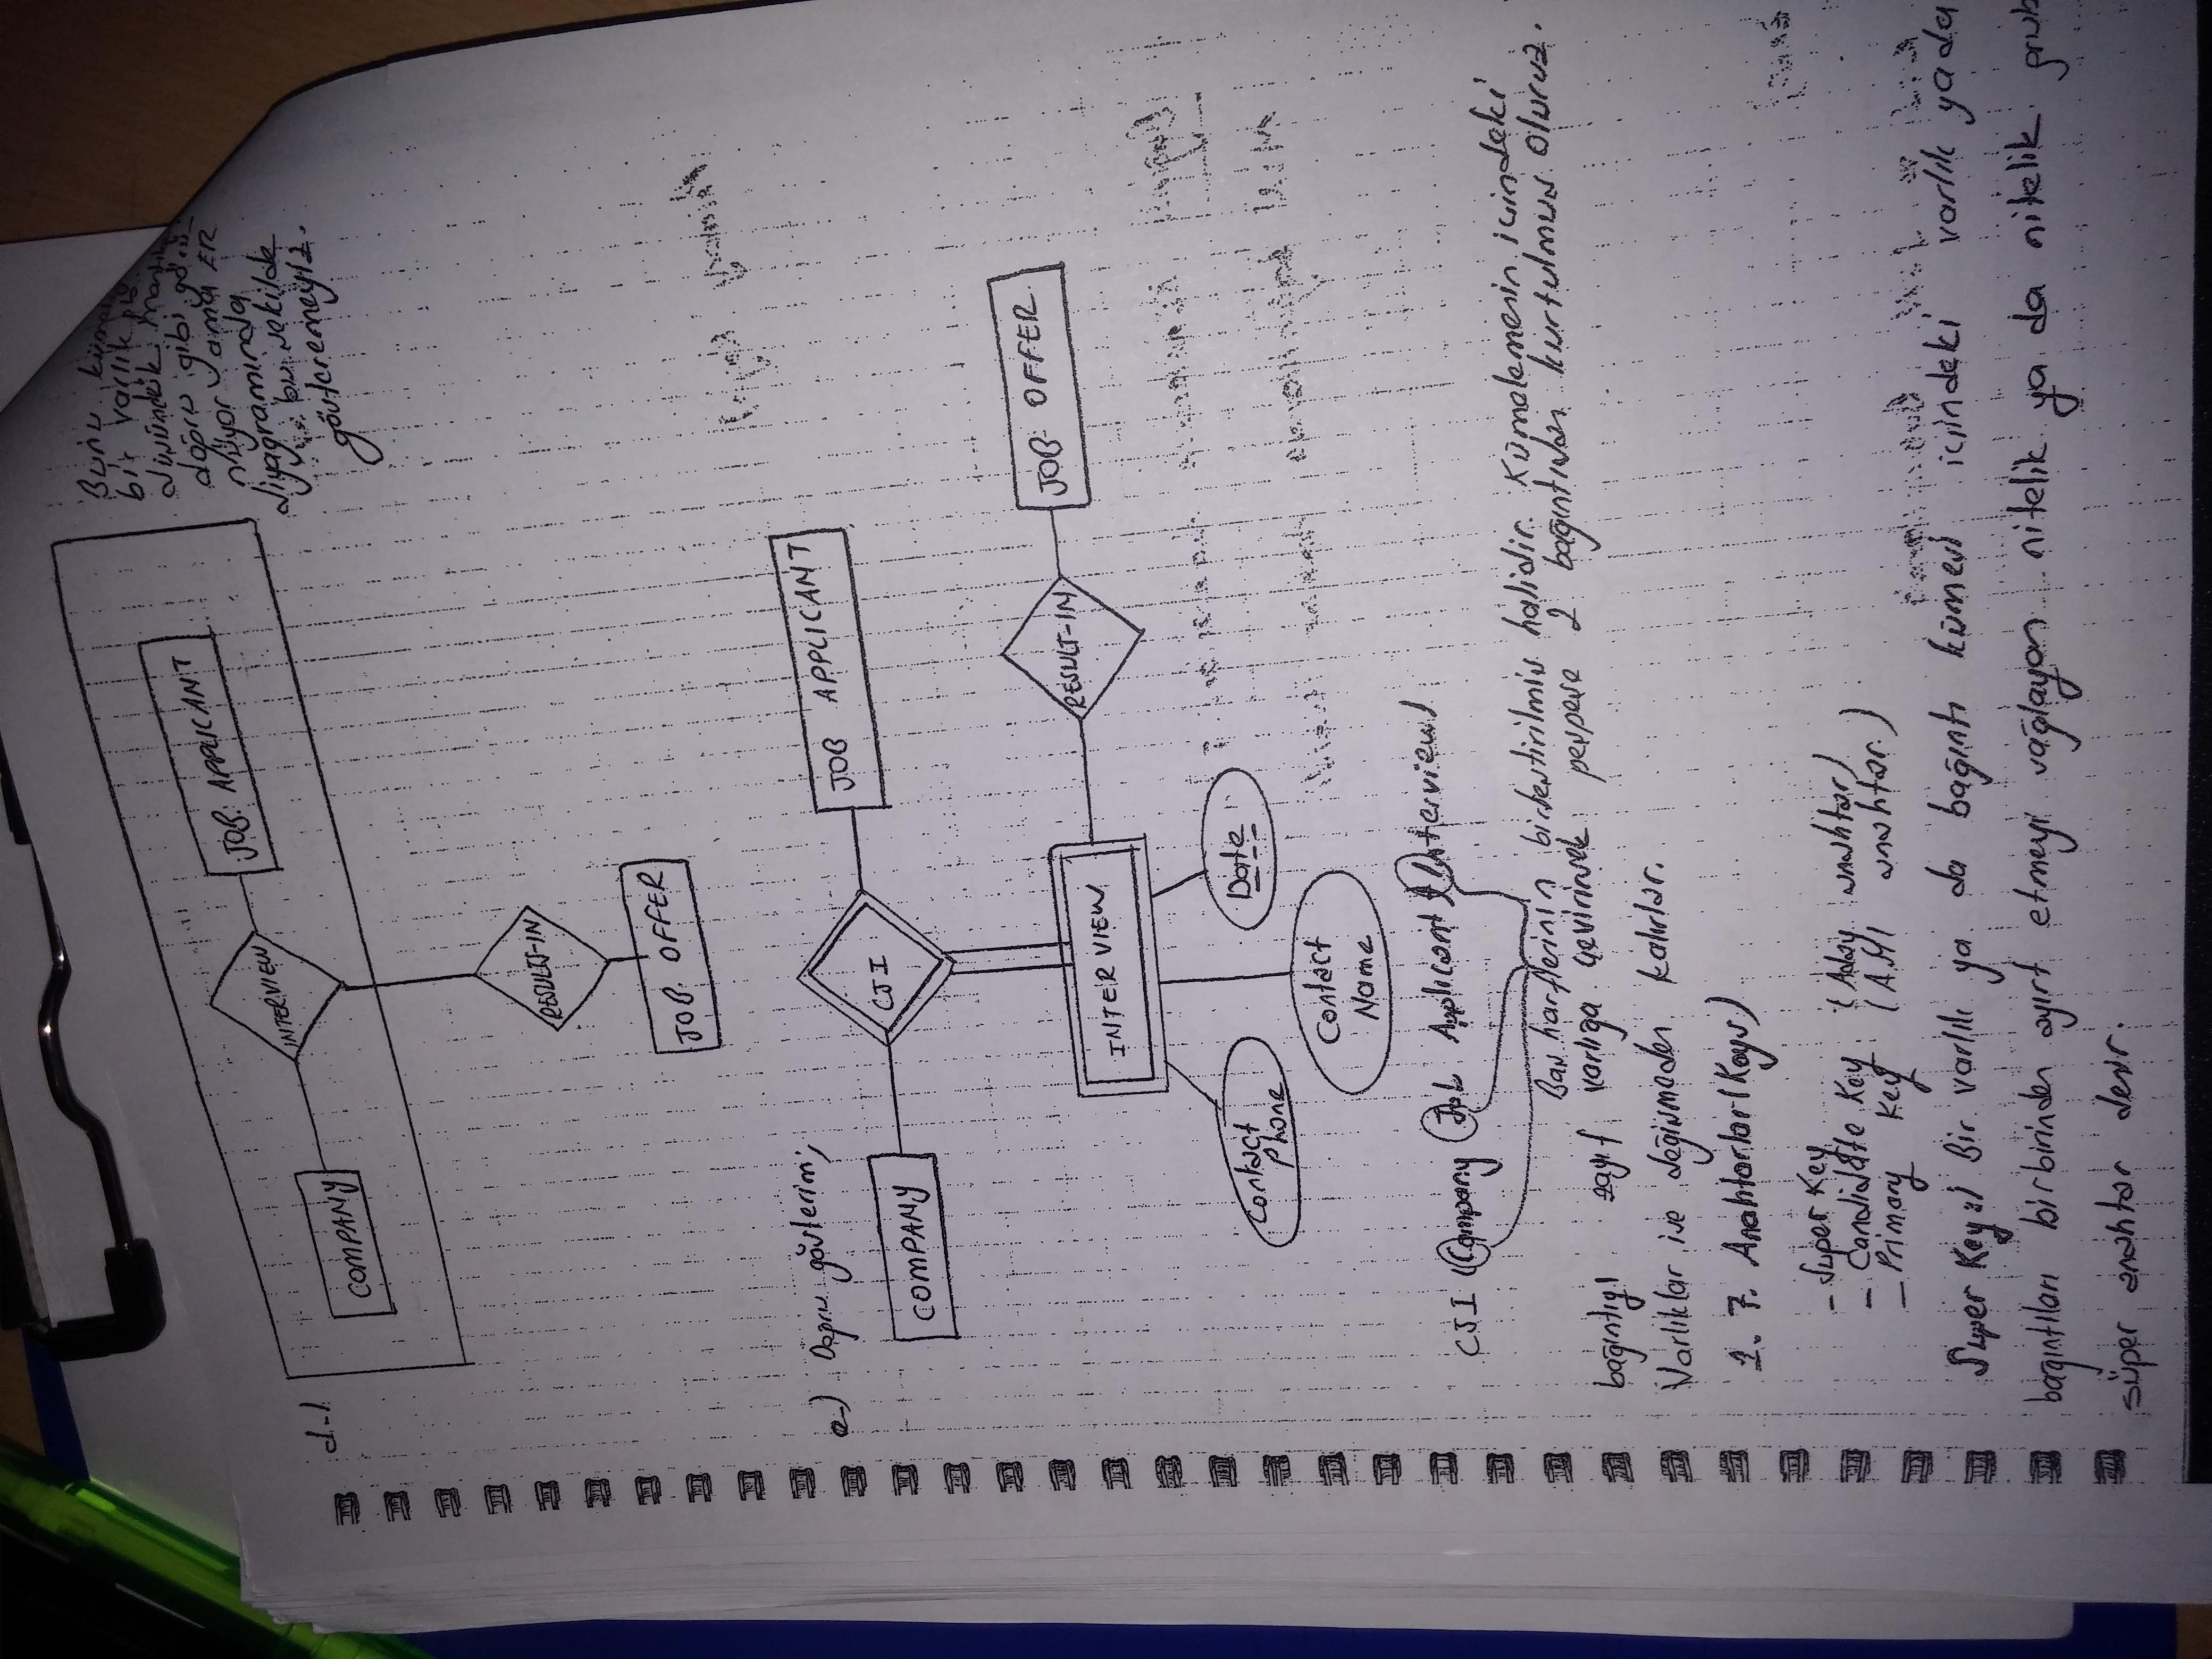 d-)
COMPANY
INTERVIEW
JOB APPLICANT
RESULT-IN
JOB OFFER
Bunu
bir varlık gibi
düşünmek
doğru gibi görü-
nüyor ama ER
diyagramında
bu şekilde
gösteremeyiz.
e-) Doğru gösterim;
COMPANY
CJI
JOB APPLICANT
INTERVIEW
RESULT-IN
JOB OFFER
Contact Phone
Contact Name
Date
CJI (Company Job Applicant Interview)
Baş harflerin birleştirilmiş halidir. Kümelemenin içindeki
bağıntıyı zayıf varlığa çevirirsek peşpeşe 2 bağıntıdan kurtulmuş oluruz.
Varlıklar ise değişmeden kalırlar.
2.7. Anahtarlar (Keys)
- Super Key
- Candidate Key (Aday anahtar)
- Primary Key (Asıl anahtar)
Super Key: Bir varlık ya da bağıntı kümesi içindeki varlık ya da
bağıntıları birbirinden ayırt etmeyi sağlayan nitelik ya da nitelik
süper anahtar denir.